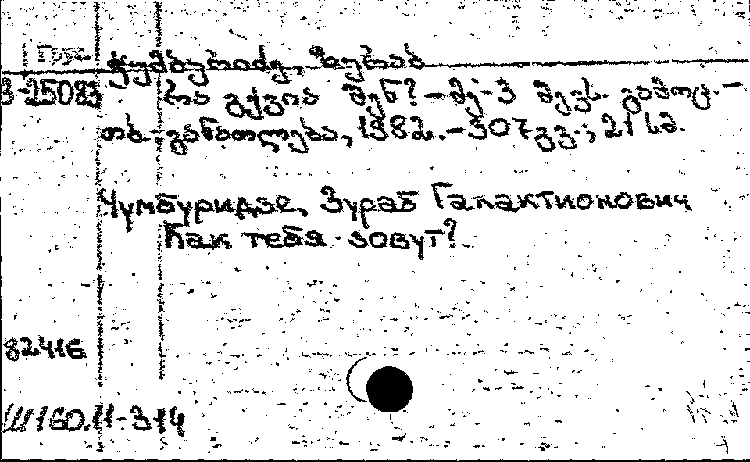 Груз-
ჭუმბურიძე, ზურაბ
3-25083
რა გქვია შენ? – მე-3 შევს. გამოც. –
თბ.: განათლება, 1982. – 307 გვ.; 21 სმ.
Чумбуридзе, Зураб Галактионович
Как тебя зовут?
82416
Ш160.11-314